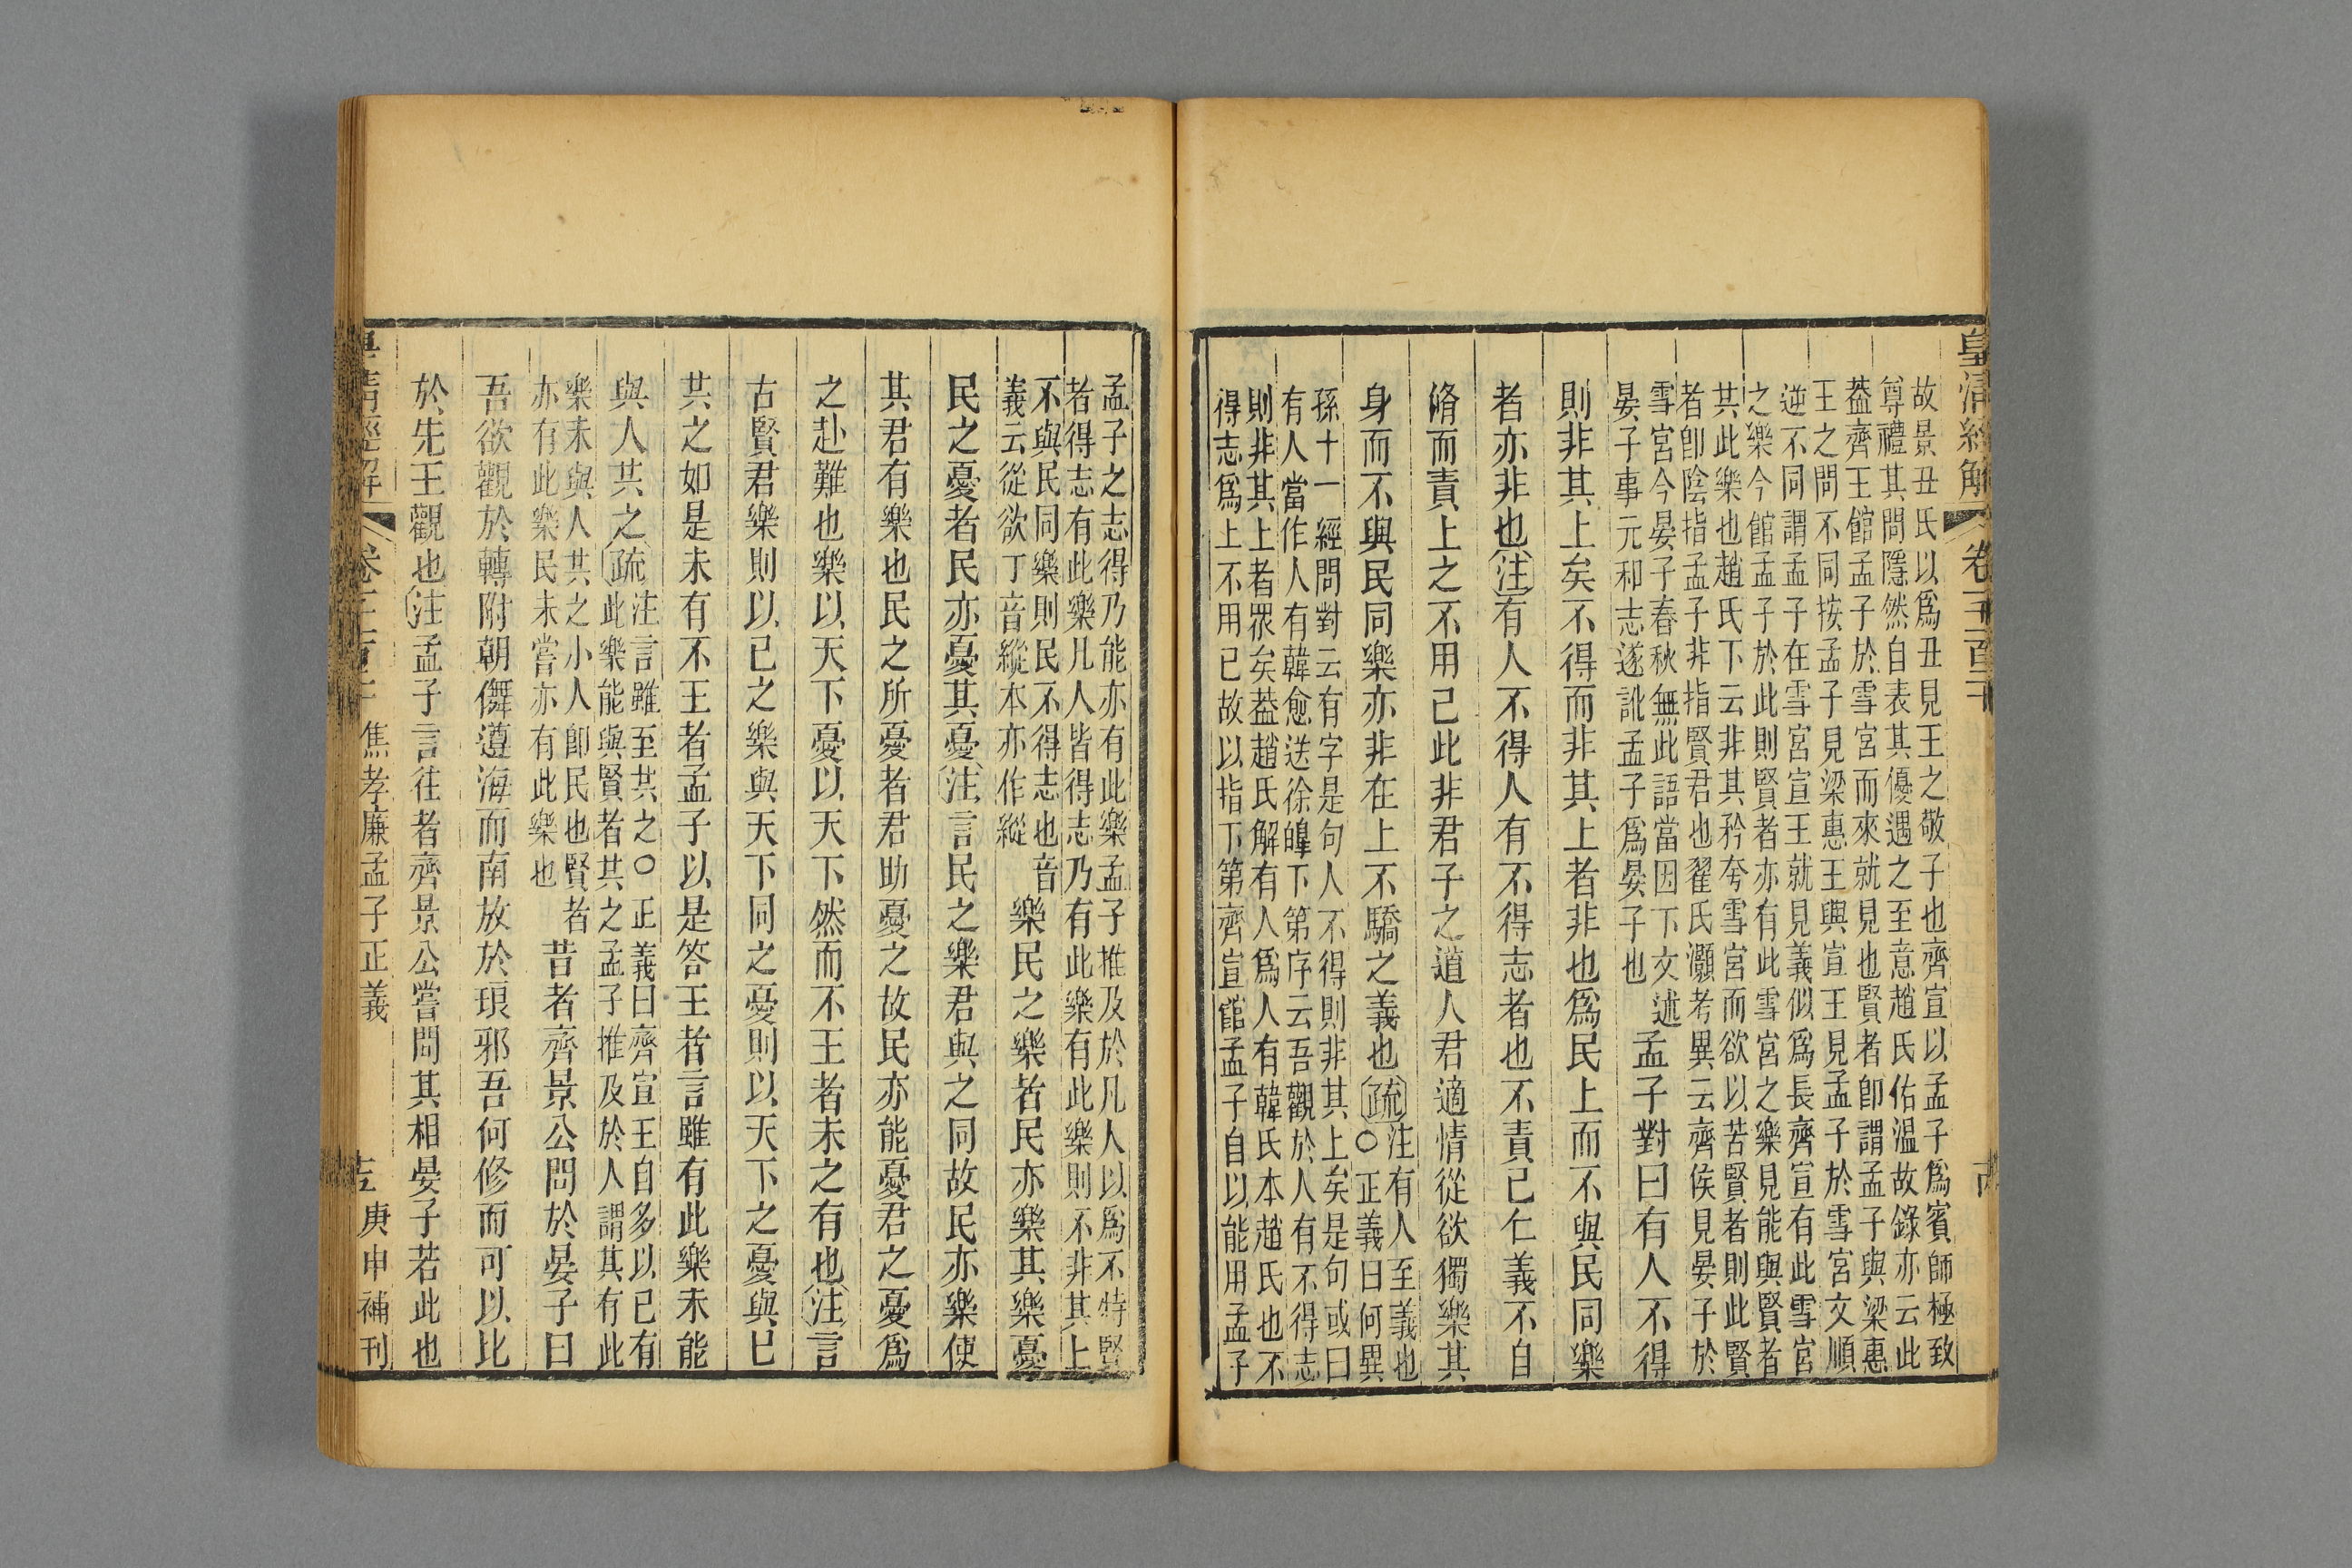 皇清經解 卷一千百二十
故景丑氏以為丑見王之敬子也齊宣以孟子為賓師極致
尊禮其問隱然自表其優遇之至意趙氏佑温故錄亦云此
葢齊王館孟子於雪宮而來就見也賢者卽謂孟子與梁惠
王之問不同按孟子見梁惠王與宣王見孟子於雪宮文順
逆不同謂孟子在雪宮宣王就見義似為長齊宣有此雪宮
之樂今館孟子於此則賢者亦有此雪宮之樂見能與賢者
其此樂也趙氏下云非其矜夸雪宮而欲以苦賢者則此賢
者卽陰指孟子非指賢君也翟氏灝考異云齊侯見晏子於
雪宮今晏子春秋無此語當因下文述
晏子事元和志遂訛孟子為晏子也
孟子對曰有人不得
則非其上矣不得而非其上者非也為民上而不與民同樂
者亦非也注有人不得人有不得志者也不責己仁義不自
脩而責上之不用己此非君子之道人君適情從欲獨樂其
身而不與民同樂亦非在上不驕之義也疏
注有人至義也
○正義曰何異
孫十一經問對云有字是句人不得則非其上矣是句或曰
有人當作人有韓愈送徐皥下第序云吾觀於人有不得志
則非其上者眾矣葢趙氏解有人為人有韓氏本趙氏也不
得志為上不用己故以指下第齊宣館孟子自以能用孟子
孟子之志得乃能亦有此樂孟子推及於凡人以為不特賢
者得志有此樂凡人皆得志乃有此樂有此樂則不非其上
不與民同樂則民不得志也音
義云從欲丁音縱本亦作縱
樂民之樂者民亦樂其樂憂
民之憂者民亦憂其憂注言民之樂君與之同故民亦樂使
其君有樂也民之所憂者君助憂之故民亦能憂君之憂為
之赴難也樂以天下憂以天下然而不王者未之有也注言
古賢君樂則以己之樂與天下同之憂則以天下之憂與己
共之如是未有不王者孟子以是答王者言雖有此樂未能
與人共之疏
注言雖至共之○正義曰齊宣王自多以己有
此樂能與賢者共之孟子推及於人謂其有此
樂未與人共之小人卽民也賢者
亦有此樂民未嘗亦有此樂也
昔者齊景公問於晏子曰
吾欲觀於轉附朝儛遵海而南放於琅邪吾何修而可以比
於先王觀也注孟子言往者齊景公嘗問其相晏子若此也
皇清經解 卷一千百二十 焦孝廉孟子正義 庚申補刊